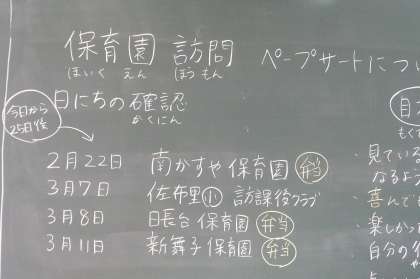 保育園 訪問
ほいく えん ほう もん
ペープサートにつ
日にちの確認
かくにん
今日から
25日後
2月22日 南かすや保育園 弁当
3月7日 佐布里小 訪課後クラブ
3月8日 日長台保育園 弁当
3月11日 新舞子保育園 弁当
・見ている
なるよう
・喜んでも
・楽しかっ
・自分の